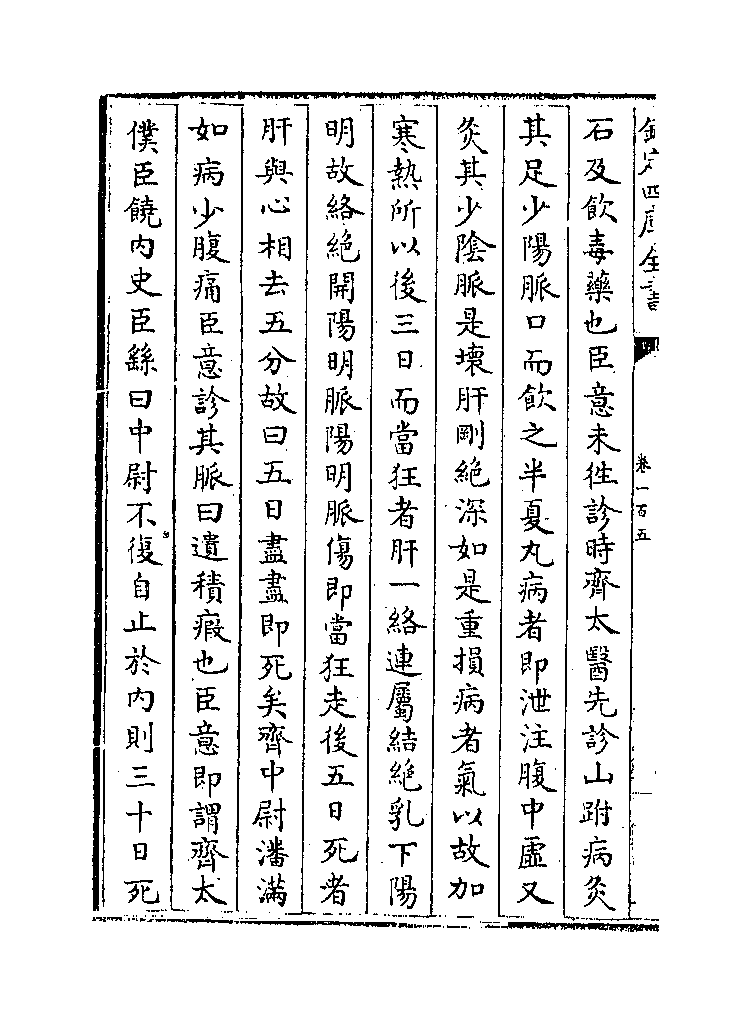 欽定四庫全書
卷一百五
石及飲毒藥也臣意未徃診時齊太醫先診山跗病灸
其足少陽脈口而飲之半夏丸病者即泄注腹中虛又
灸其少陰脈是壞肝剛絶深如是重損病者氣以故加
寒熱所以後三日而當狂者肝一絡連屬結絶乳下陽
明故絡絶開陽明脈陽明脈傷即當狂走後五日死者
肝與心相去五分故曰五日盡盡即死矣齊中尉潘滿
如病少腹痛臣意診其脈曰遺積瘕也臣意即謂齊太
僕臣饒内史臣繇曰中尉不復自止於内則三十日死